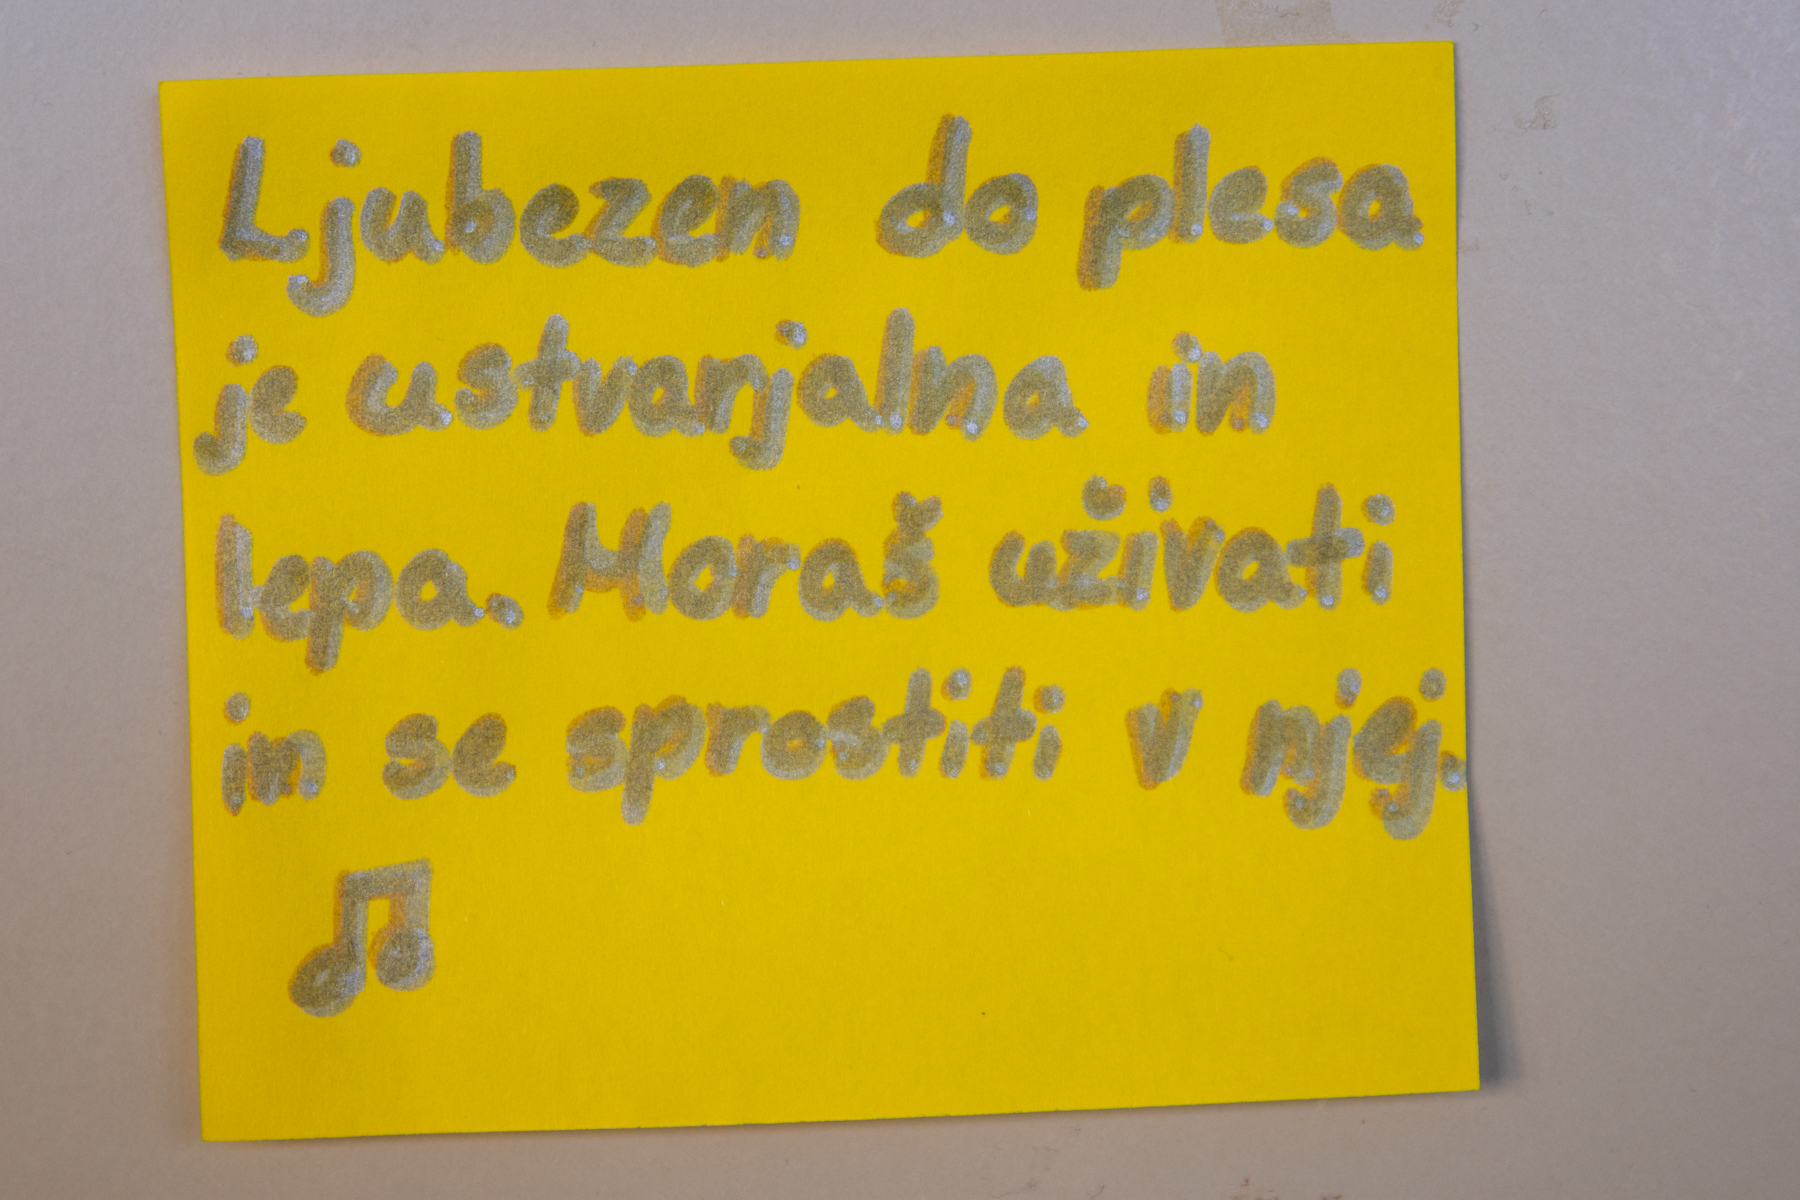 Ljubezen do plesa
je ustvarjalna in
lepa. Moraš uživati
in se sprostiti v njej.